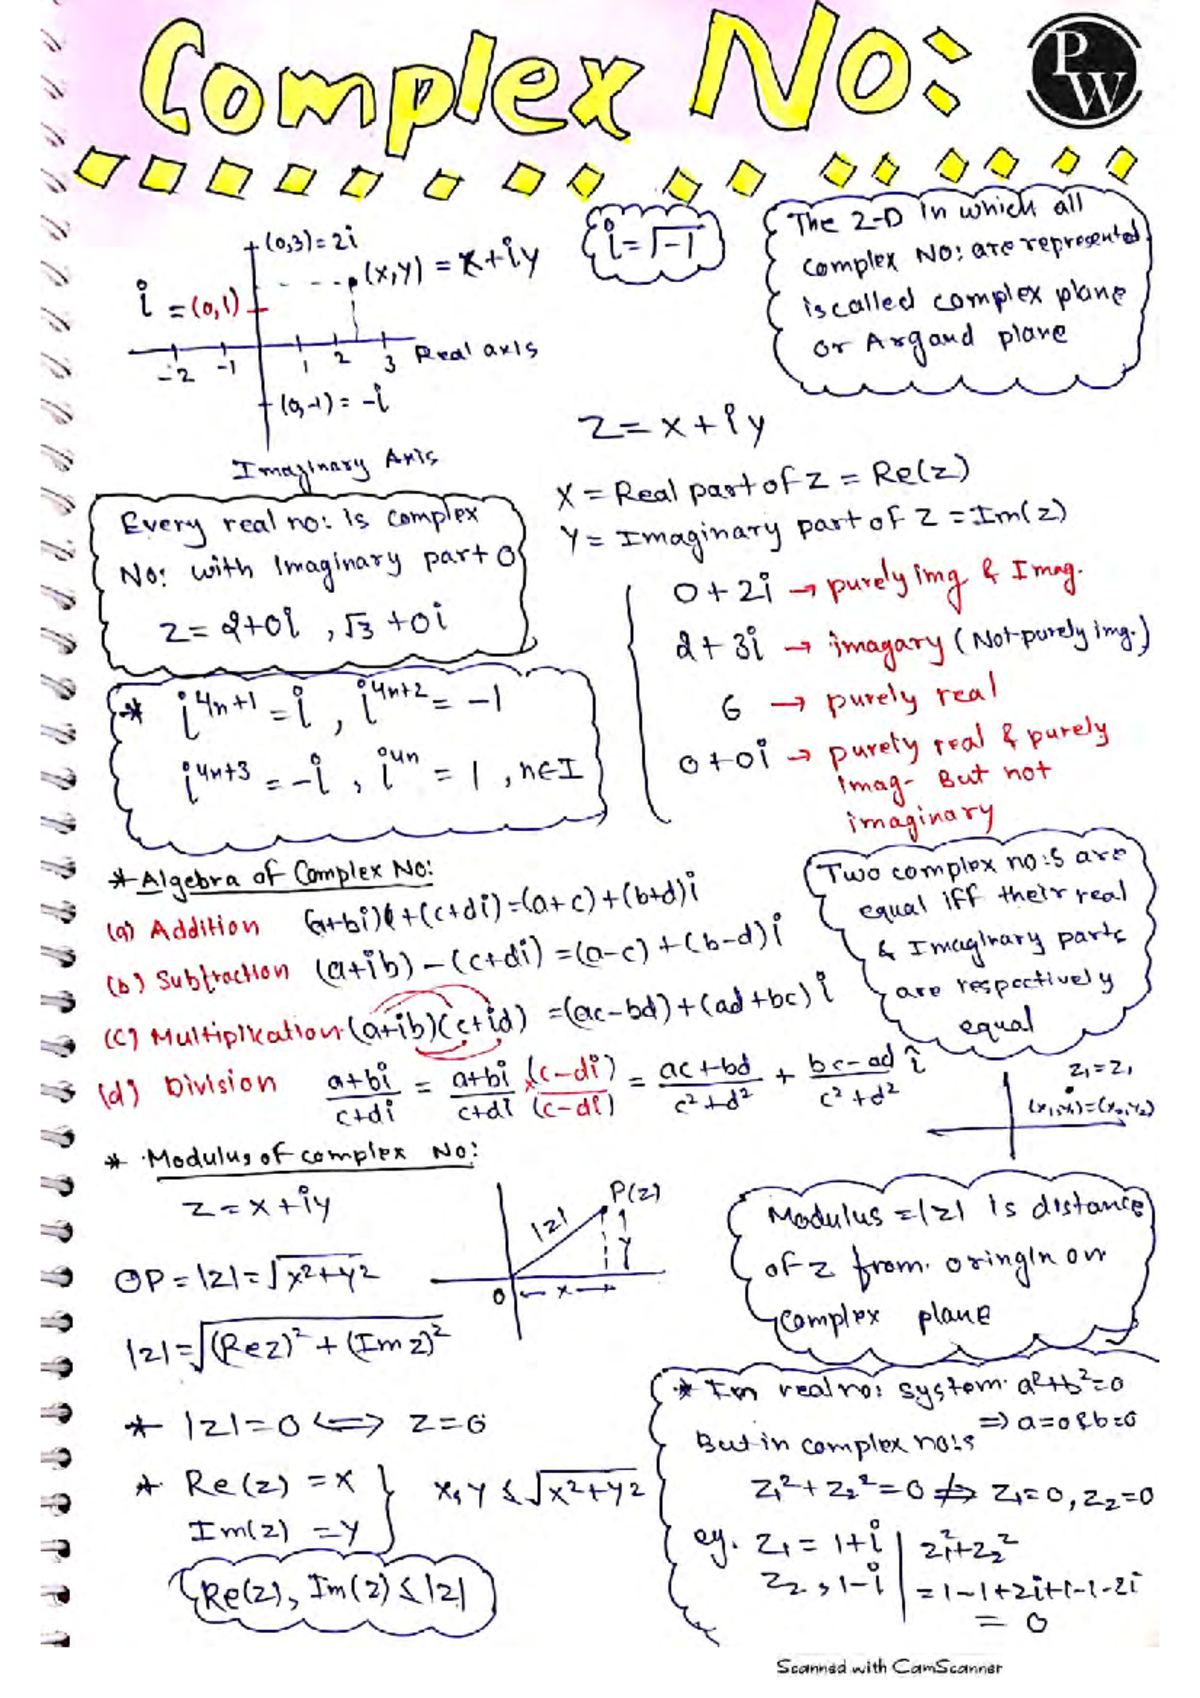 Complex No:
PW
(0,3)=2i
(x,y) = x+iy
i = (0,1)
-2 -1 1 2 3 Real axis
(0,-1) = -i
Imaginary Axis
i=√-1
The 2-D in which all
complex No: are represented
is called complex plane
or Argand plane
Z=x+iy
X = Real part of Z = Re(z)
Y = Imaginary part of Z = Im(z)
Every real no: is complex
No: with Imaginary part 0
Z= 2+0i , √3 +0i
0+2i → purely img & Imag.
2+3i → imagary (Not-purely img.)
6 → purely real
0+0i → purely real & purely
imag- But not
imaginary
* i⁴ⁿ⁺¹ = i , i⁴ⁿ⁺² = -1
i⁴ⁿ⁺³ = -i , i⁴ⁿ = 1 , n∈I
* Algebra of Complex No:
(a) Addition (a+bi)+(c+di)=(a+c)+(b+d)i
(b) Subtraction (a+ib)-(c+di)=(a-c)+(b-d)i
(c) Multiplication (a+ib)(c+id) =(ac-bd)+(ad+bc)i
(d) Division a+bi/c+di = a+bi/c+di × (c-di)/(c-di) = ac+bd/c²+d² + bc-ad/c²+d² i
Two complex no:s are
equal iff their real
& Imaginary parts
are respectively
equal
Z₁=Z₁
(x₁,y₁)=(x₂,y₂)
* Modulus of complex No:
Z=x+iy
OP=|z|=√x²+y²
|z|=√(Rez)²+(Imz)²
P(z)
|z|
y
O x
Modulus =|z| is distance
of z from oringin on
complex plane
* |z|=0 ⟺ Z=0
* Re(z) = x
Im(z) = y
x, y ≤ √x²+y²
Re(z), Im(z) ≤ |z|
* In real no: system a²+b²=0
⇒ a=0 & b=0
But in complex no:s
Z₁²+Z₂²=0 ⇏ Z₁=0, Z₂=0
eg. Z₁ = 1+i
Z₂ , 1-i
Z₁²+Z₂²
=1-1+2i+1-1-2i
= 0
Scanned with CamScanner